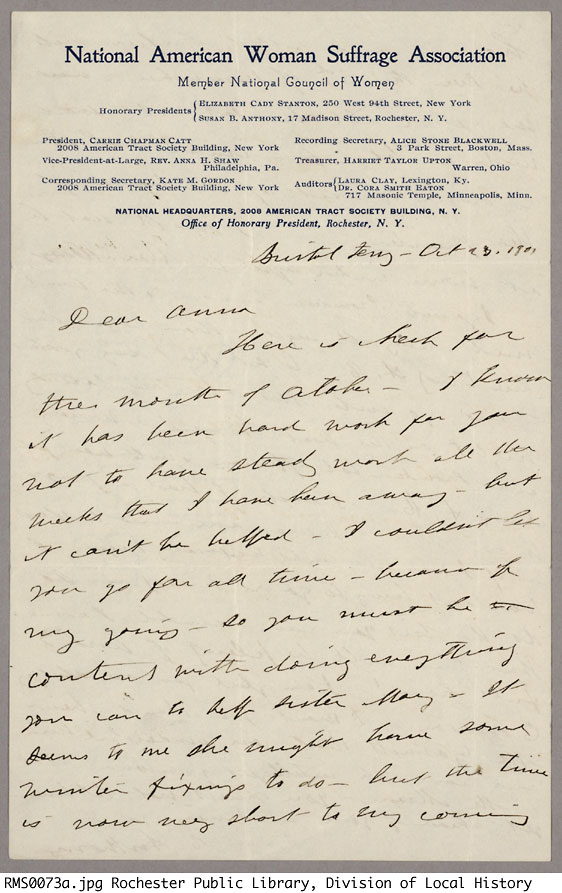 National American Woman Suffrage Association
Member National Council of Women
Honorary Presidents { ELIZABETH CADY STANTON, 250 West 94th Street, New York
SUSAN B. ANTHONY, 17 Madison Street, Rochester, N. Y.
President, CARRIE CHAPMAN CATT
2008 American Tract Society Building, New York
Vice-President-at-Large, REV. ANNA H. SHAW
Philadelphia, Pa.
Corresponding Secretary, KATE M. GORDON
2008 American Tract Society Building, New York
Recording Secretary, ALICE STONE BLACKWELL
3 Park Street, Boston, Mass.
Treasurer, HARRIET TAYLOR UPTON
Warren, Ohio
Auditors { LAURA CLAY, Lexington, Ky.
DR. CORA SMITH EATON
717 Masonic Temple, Minneapolis, Minn.
NATIONAL HEADQUARTERS, 2008 AMERICAN TRACT SOCIETY BUILDING, N. Y.
Office of Honorary President, Rochester, N. Y.
Bristol Ferry - Oct 23. 1901
Dear Anna
Here is check for
this month of October - I know
it has been hard work for you
not to have steady work all the
weeks that I have been away - but
it can't be helped - I couldn't let
you go for all time - because of
my going - so you must be
content with doing everything
you can to help sister Mary - It
seems to me she might have some
winter fixings to do - but the time
is now very short to my coming
RMS0073a.jpg Rochester Public Library, Division of Local History